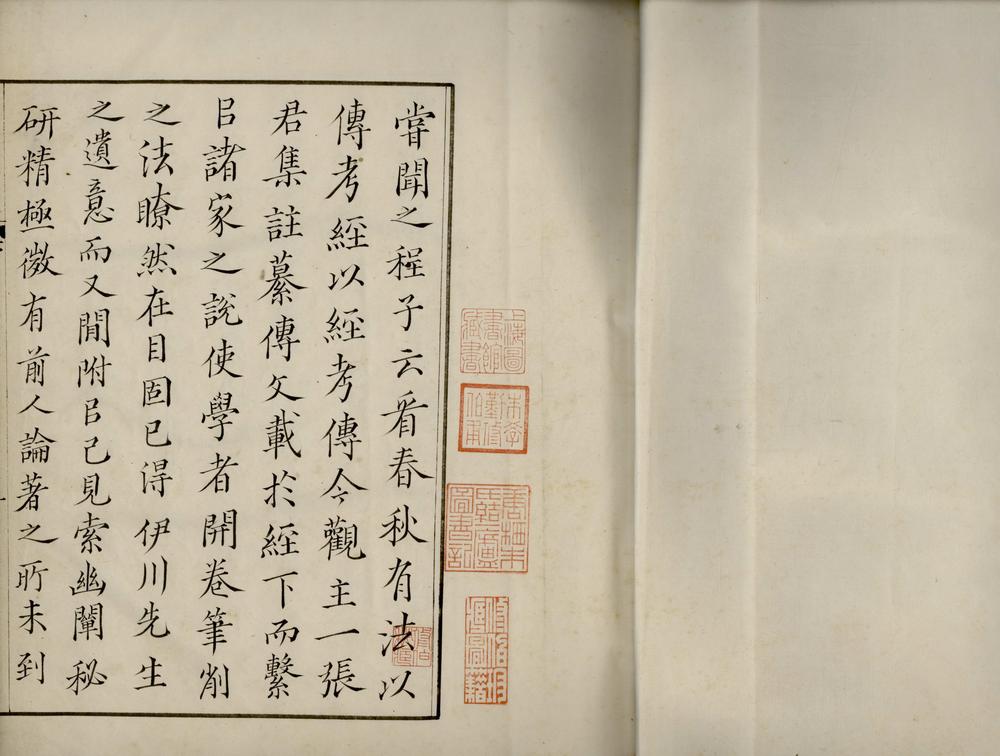 嘗聞之程子云看春秋有法以
傳考經以經考傳今觀主一張
君集註纂傳文載於經下而繫
㠯諸家之說使學者開卷筆削
之法瞭然在目固已得伊川先生
之遺意而又間附㠯己見索幽闡秘
研精極微有前人論著之所未到
上海圖
書館
藏書